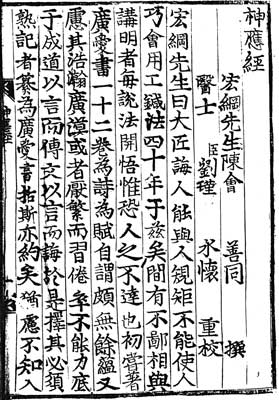 神應經
宏綱先生陳會 善同 撰
醫士 臣劉瑾 永懷 重校
宏綱先生曰大匠誨人能與人規矩不能使人
巧會用工鍼法四十年于玆矣間有不鄙相與
講明者每說法開悟惟恐人之不達也初嘗著
廣愛書一十二卷為詩為賦自謂頗無餘蘊又
慮其浩瀚廣漠或者厭繁而習倦卒不能力底
于成道以言而傳文以言而誨於是擇其必須
熟記者纂為廣愛書括斯亦約矣猶應不知入